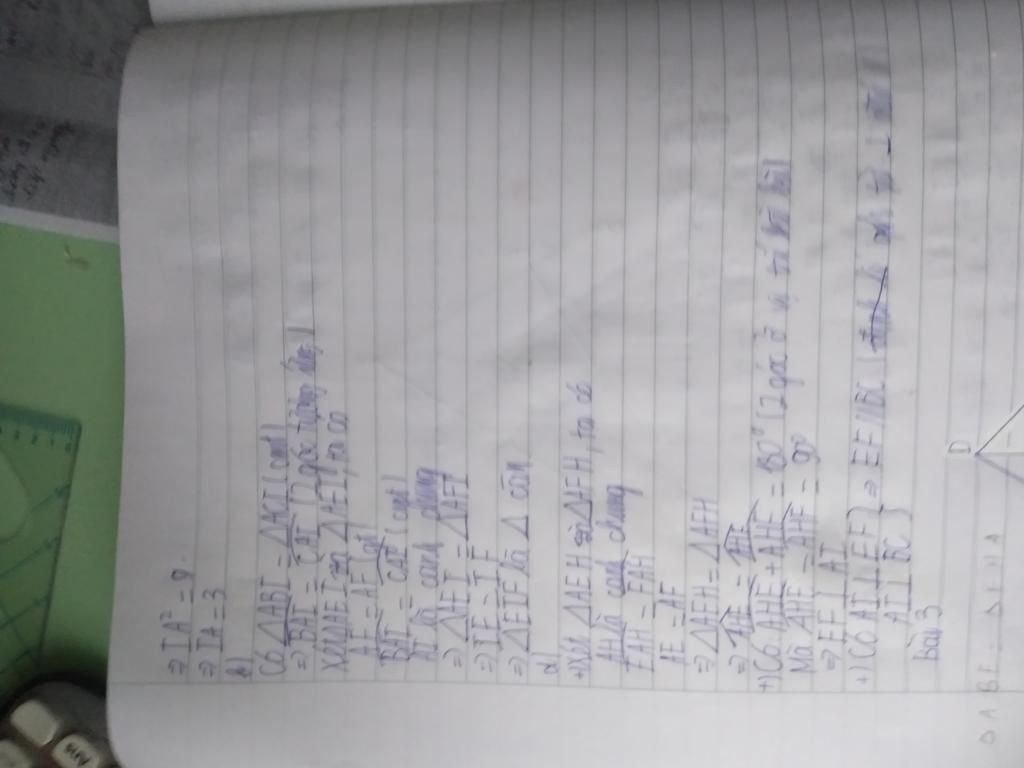 ⇒ IA² = 9
⇒ IA = 3
Có △ABI = △ACI (cmt)
⇒ BAI = CAI (2 góc tương ứng)
Xét △AEI và △AFI, ta có
AE = AF (gt)
BAI = CAI (cmt)
AI là cạnh chung
⇒ △AEI = △AFI
⇒ IE = IF
⇒ △EIF là △ cân
d)
+) Xét △AEH và △AFH, ta có
AH là cạnh chung
EAH = FAH
AE = AF
⇒ △AEH = △AFH
+) Có AHE + AHF = 180° (2 góc ở vị trí kề bù)
Mà AHE = AHF = 90°
⇒ EF ⊥ AI
+) Có AI ⊥ EF } ⇒ EF // BC (
AI ⊥ BC }
Bài 3
D